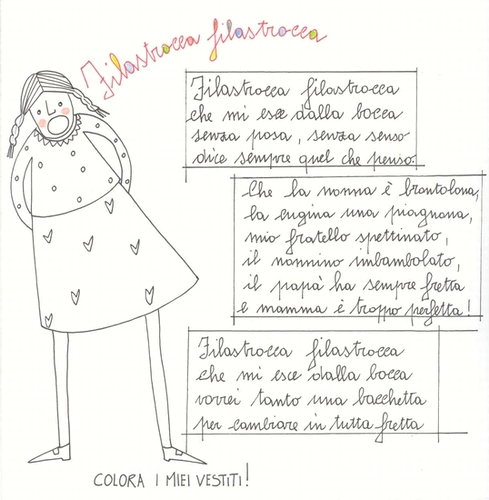 Filastrocca filastrocca
Filastrocca filastrocca
che mi esce dalla bocca
senza posa, senza senso
dice sempre quel che penso.
Che la nonna è brontolona,
la cugina una piagnona,
mio fratello spettinato,
il nonnino imbambolato,
il papà ha sempre fretta
e mamma è troppo perfetta!
Filastrocca filastrocca
che mi esce dalla bocca
vorrei tanto una bacchetta
per cambiare in tutta fretta
COLORA I MIEI VESTITI!